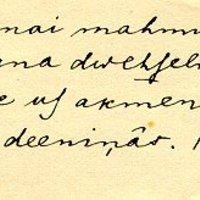 nai mahm
na dwehſel
e uſ akmen
deeniņâs.